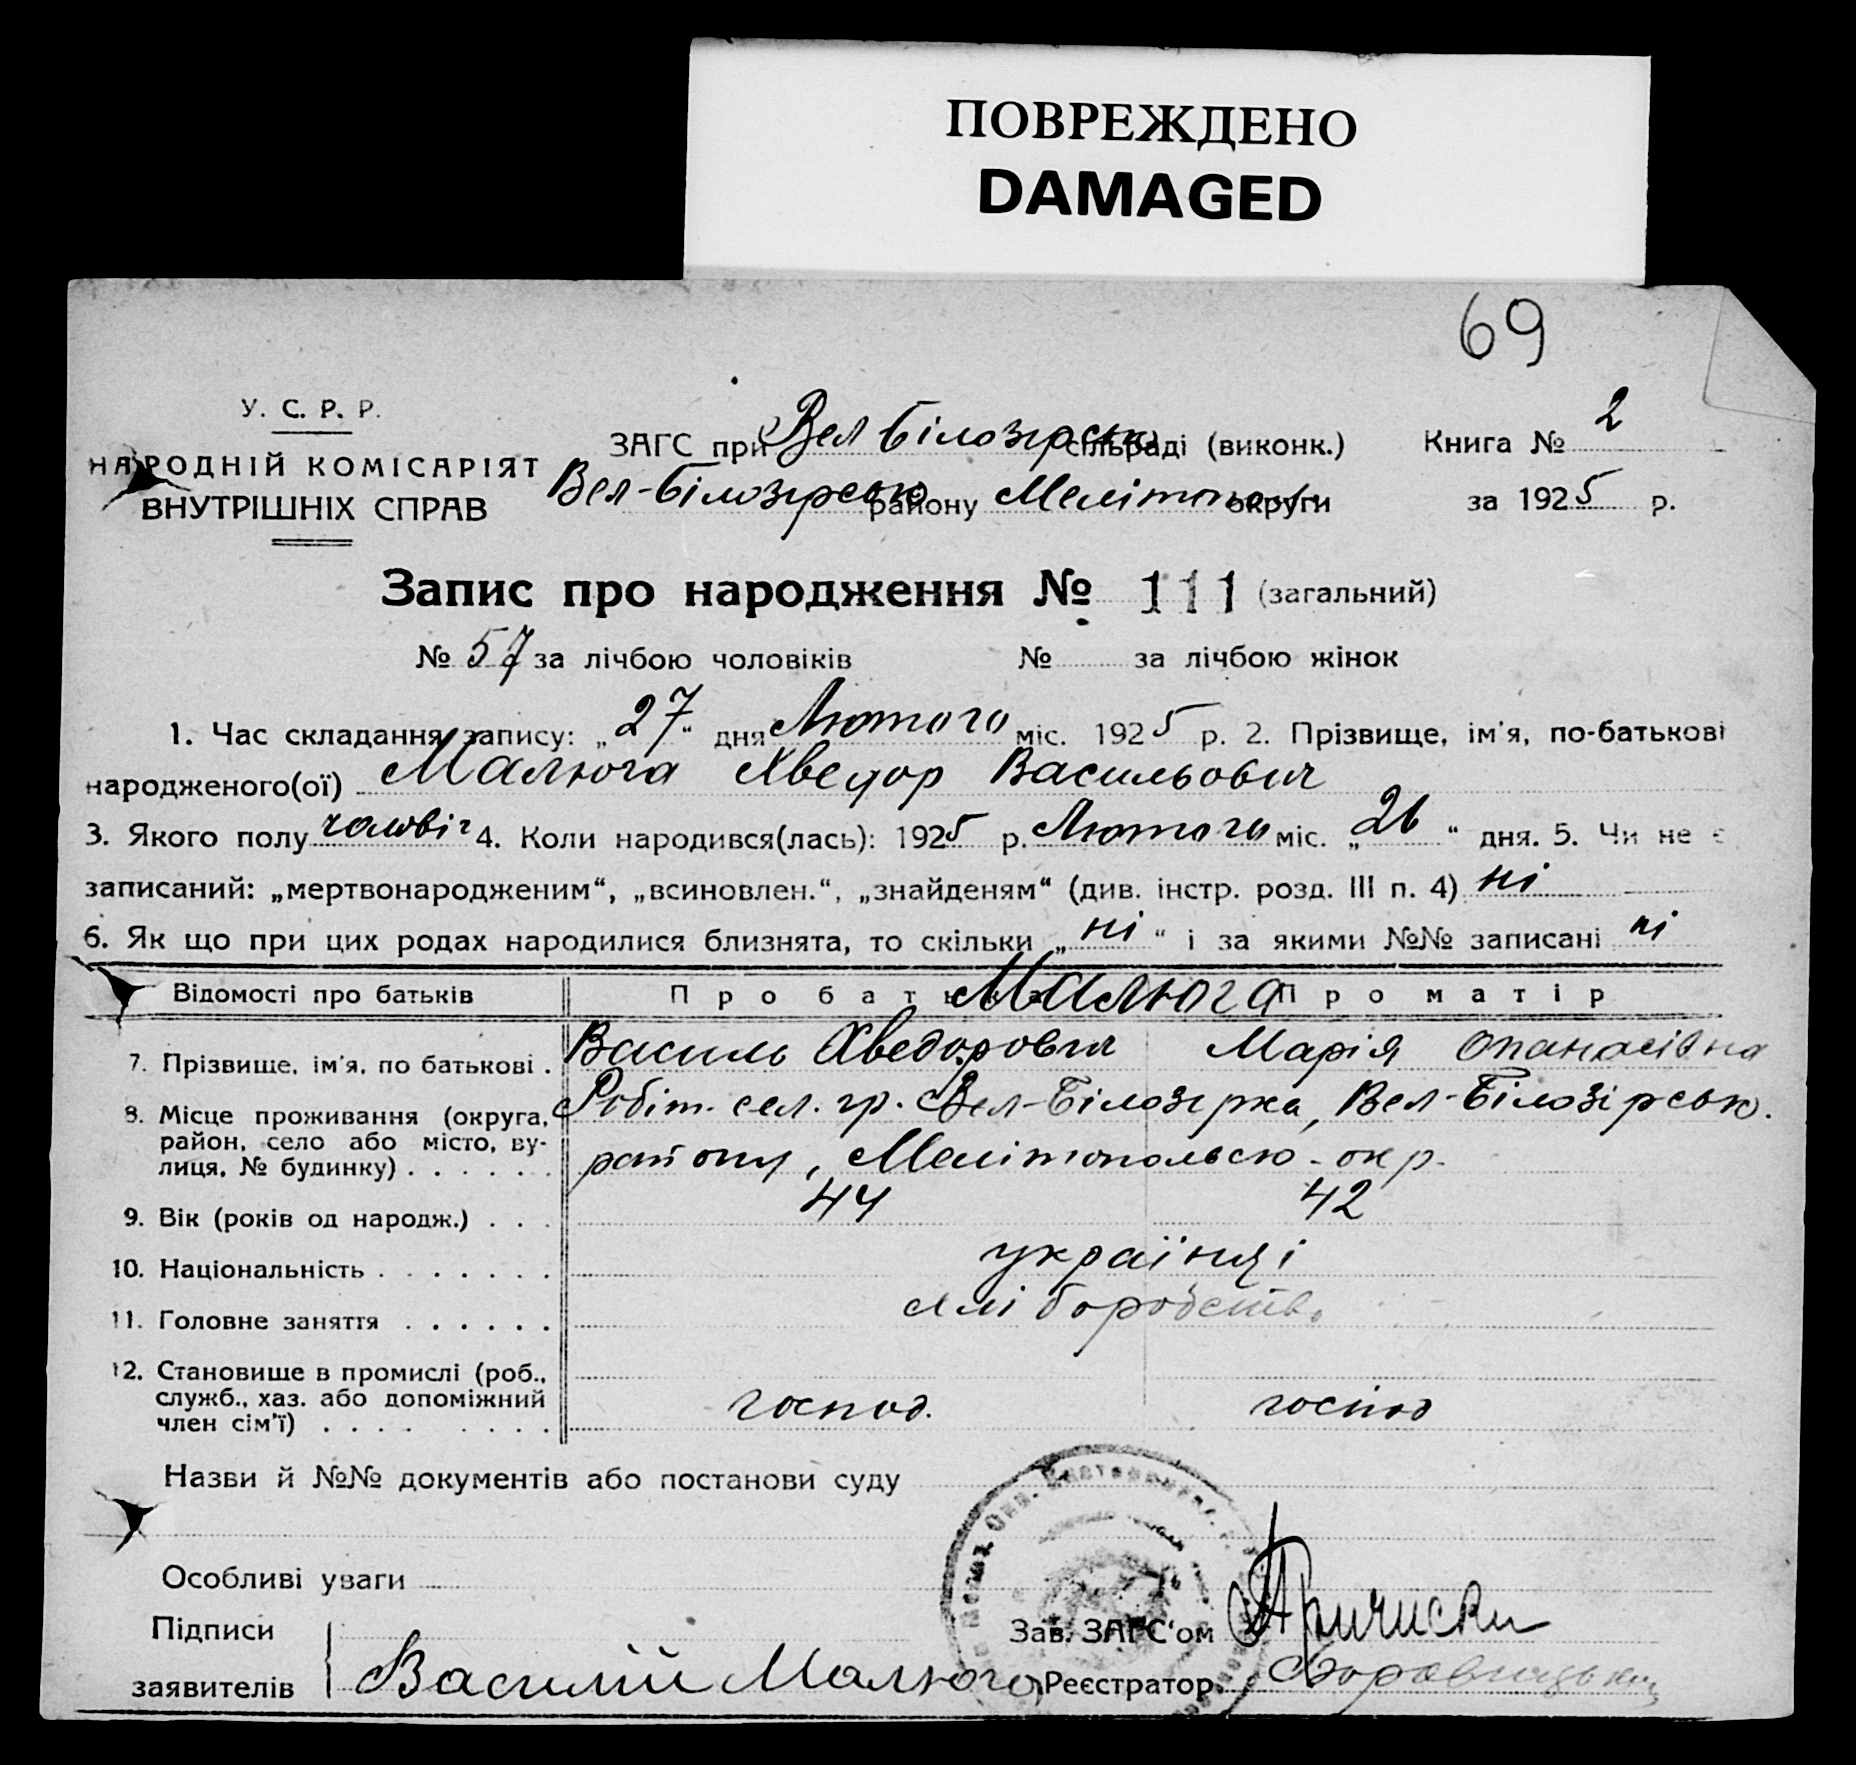 ПОВРЕЖДЕНО
DAMAGED
69
У. С. Р. Р.
НАРОДНІЙ КОМІСАРІЯТ
ВНУТРІШНІХ СПРАВ
ЗАГС при Вел Білозірськ сільраді (виконк.) Книга № 2
Вел-Білозірсько району Мелітоп округи за 1925 р.
Запис про народження № 111 (загальний)
№ 57 за лічбою чоловіків № за лічбою жінок
1. Час складання запису: „27“ дня Лютого міс. 1925 р. 2. Прізвище, ім'я, по-батькові
народженого(ої) Малюга Хведор Васильович
3. Якого полу чоловіч 4. Коли народився(лась): 1925 р. Лютого міс. „26“ дня. 5. Чи не є
записаний: „мертвонародженим“, „всиновлен.“, „знайденям“ (див. інстр. розд. III п. 4) ні
6. Як що при цих родах народилися близнята, то скільки „ні“ і за якими №№ записані ні
Відомості про батьків Про батька Малюга Про матір
7. Прізвище, ім'я, по батькові . Василь Хведорович Марія Опанасівна
8. Місце проживання (округа, район, село або місто, вулиця, № будинку) . . . . . . Робіт. сел. гр. Вел-Білозірка, Вел-Білозірськ.
району, Мелітопольсю-окр.
9. Вік (років од народж.) . . . 44 42
10. Національність . . . . . . . українці
11. Головне заняття . . . . . . хліборобств.
12. Становище в промислі (роб., служб., хаз. або допоміжний член сім'ї) . . . . . . . . господ. господ
Назви й №№ документів або постанови суду
Особливі уваги
Підписи
Зав. ЗАГС'ом
заявителів Василій Малюга Реєстратор